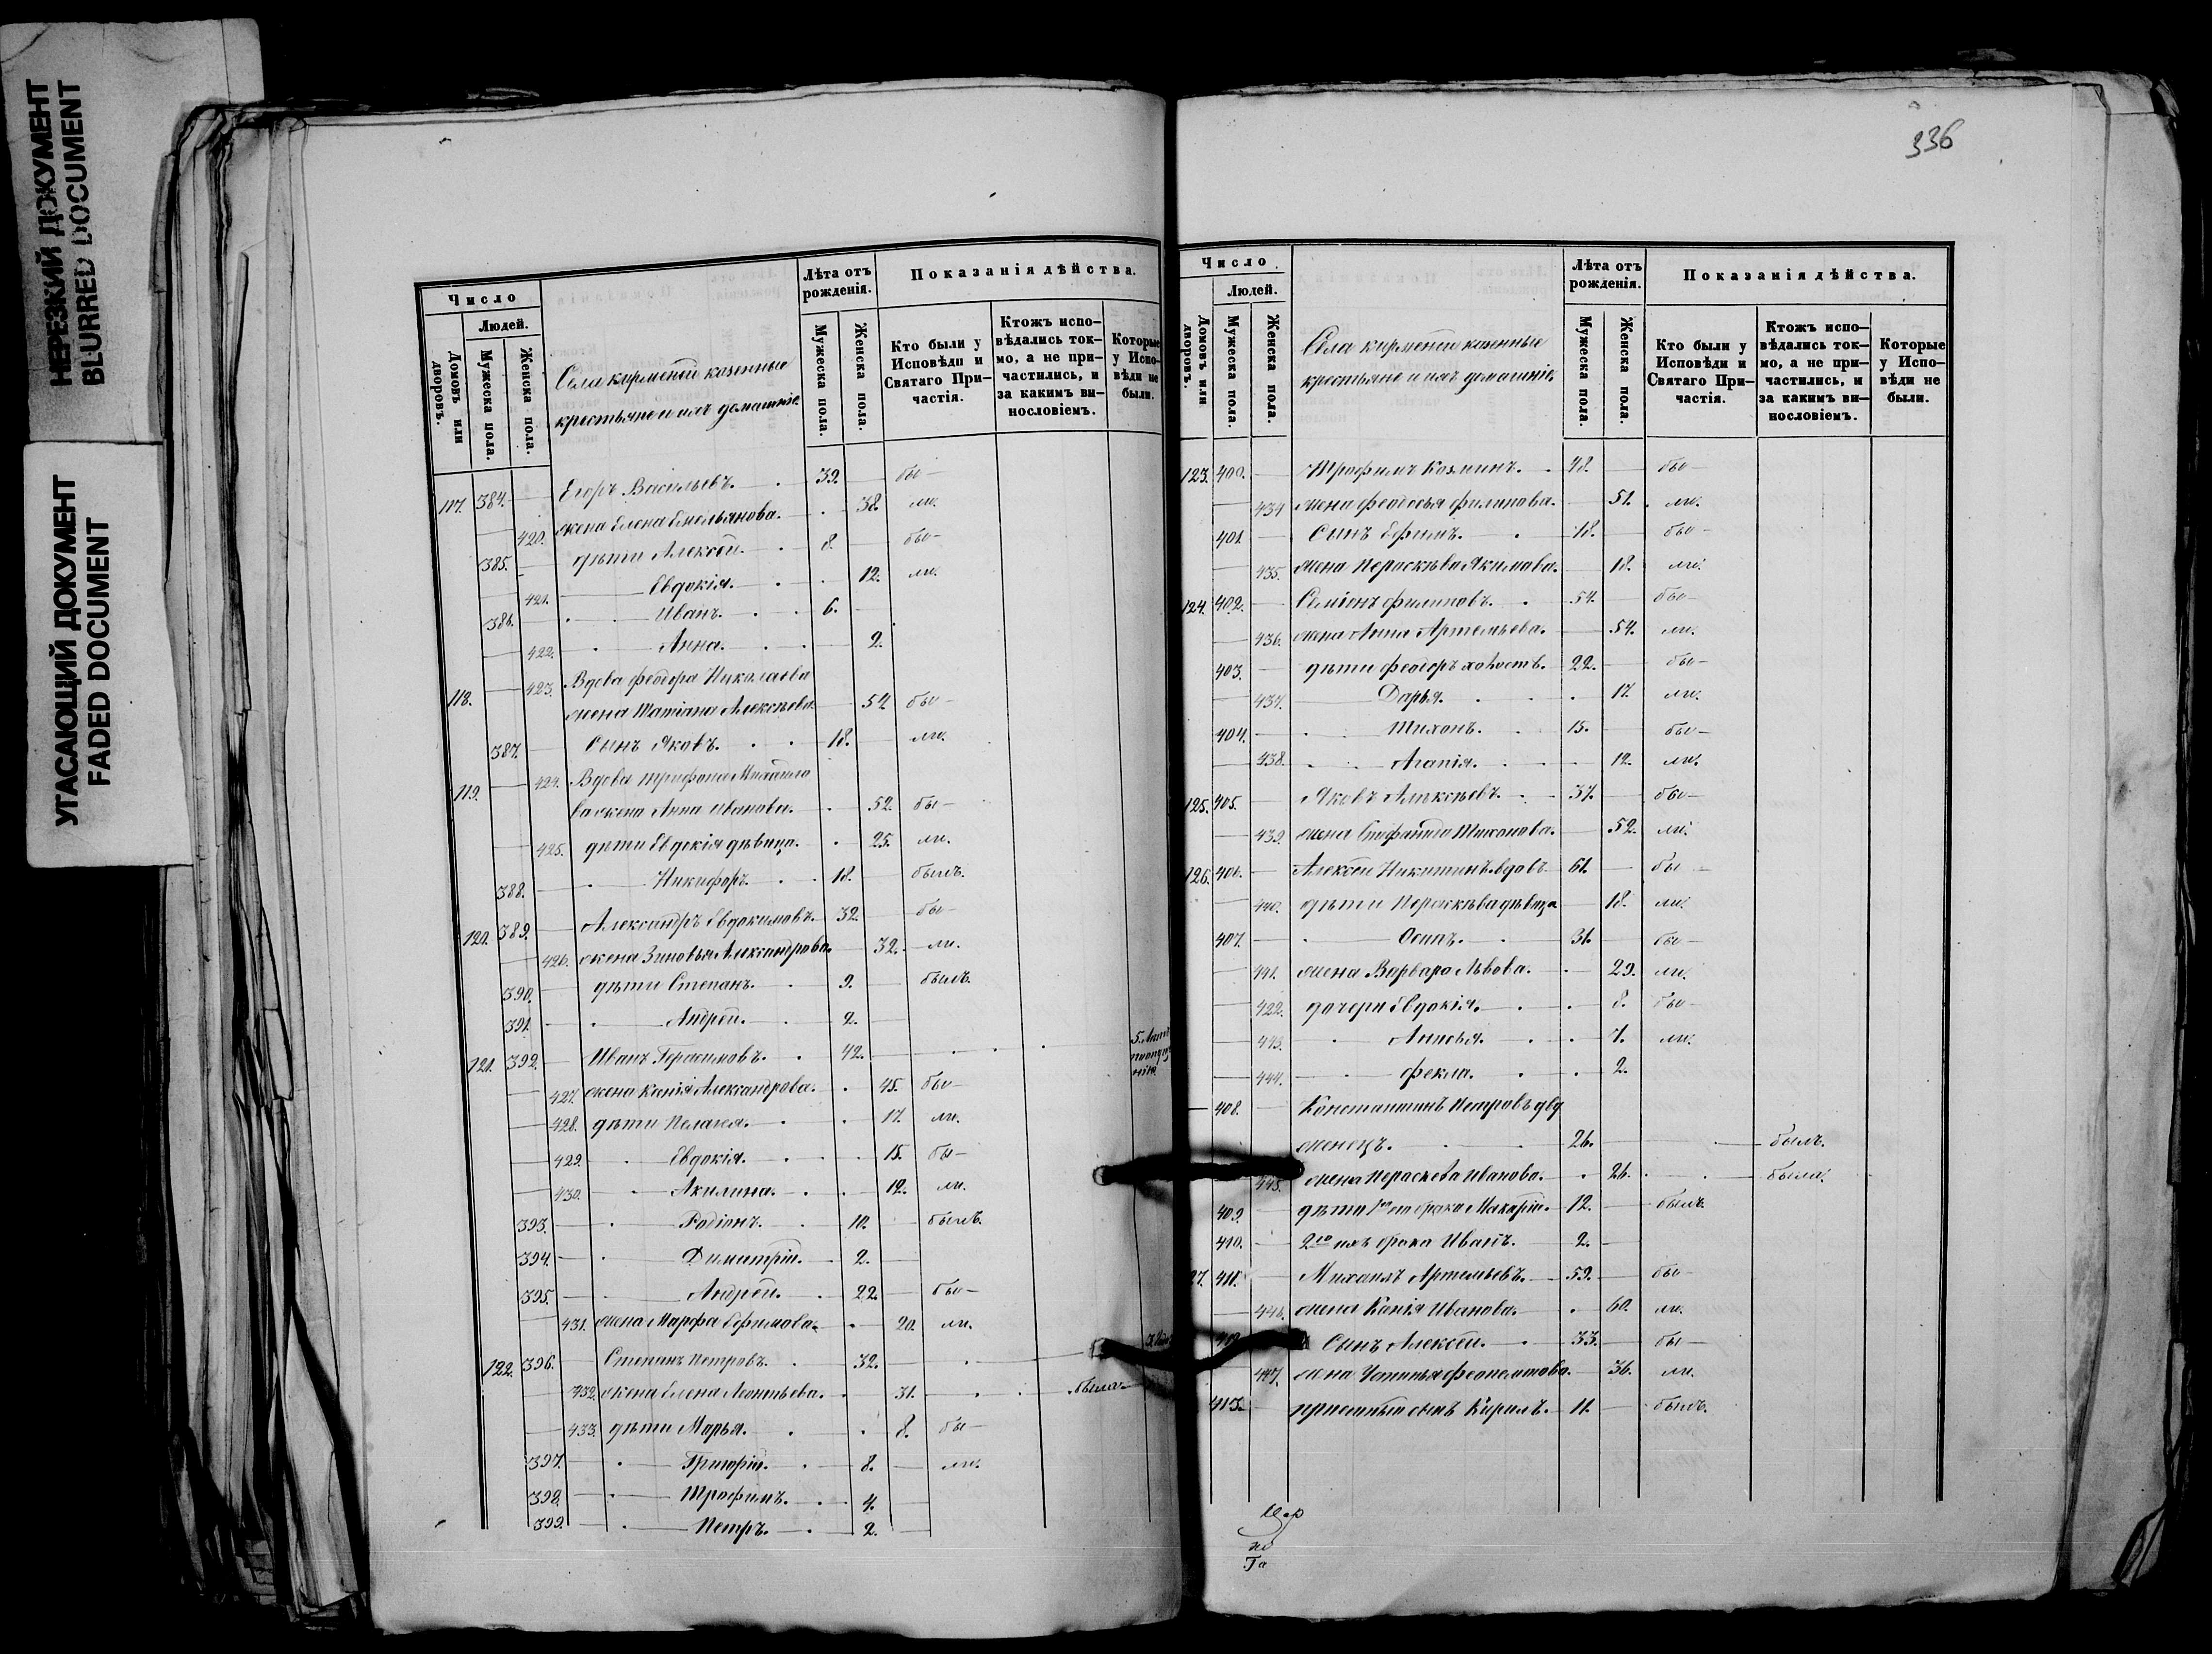 НЕРЕЗКИЙ ДОКУМЕНТ
BLURRED DOCUMENT
УГАСАЮЩИЙ ДОКУМЕНТ
FADED DOCUMENT
Число
Людей.
Домовъ или дворовъ.
Мужеска пола.
Женска пола.
Села кирмени казенные
крестьяне и ихъ домашніе
Лѣта отъ рожденія.
Мужеска пола.
Женска пола.
Показанія дѣйства.
Кто были у Исповѣди и Святаго При-частія.
Ктожъ испо-вѣдались ток-мо, а не при-частились, и за какимъ ви-нословіемъ.
Которые у Испо-вѣди не были.
117. 384. Егоръ Васильевъ. 39. бы
420. жена Елена Емельянова. 38. ли.
385. дѣти Алексѣй. 8. бы
421. Евдокія. 12. ли.
386. Иванъ. 6.
422. Анна. 2.
118. 423. Вдова Феодора Николаева
жена Татіана Алексѣева 54. бы
387. Сынъ Яковъ. 18. ли.
119. 424. Вдова Трифона Михайло
ва жена Анна Иванова. 52. бы
425. дѣти Евдокія дѣвица. 25. ли.
388. Никифоръ. 18. былъ.
120. 389. Александръ Евдокимовъ. 32. бы
426. жена Зиновья Александрова. 32. ли.
390. дѣти Степанъ. 9. былъ.
391. Андрей. 2.
121. 392. Иванъ Герасимовъ. 42. 5. Лит
427. жена Ксенія Александрова. 45. бы
428. дѣти Пелагея. 17. ли.
429. Евдокія. 15. бы
430. Акилина. 12. ли.
393. Родіонъ. 10. былъ.
394. Димитрій. 2.
395. Андрей. 22. бы
431. жена Марфа Ефимова. 20. ли.
122. 396. Степанъ Петровъ. 32.
432. жена Елена Леонтьева. 31. была
433. дѣти Марья. 8. бы
397. Григорій. 8. ли.
398. Трофимъ. 4.
399. Петръ. 2.
336
Число
Людей.
Домовъ или дворовъ.
Мужеска пола.
Женска пола.
Села кирмени казенные
крестьяне и ихъ домашніе
Лѣта отъ рожденія.
Мужеска пола.
Женска пола.
Показанія дѣйства.
Кто были у Исповѣди и Святаго При-частія.
Ктожъ испо-вѣдались ток-мо, а не при-частились, и за какимъ ви-нословіемъ.
Которые у Испо-вѣди не были.
123. 400. Трофимъ Козминъ. 48. бы
434 жена Феодосья Филипова. 51. ли.
401. Сынъ Ефимъ. 18. бы
435. жена Пераскѣва Якимова. 18. ли.
124. 402. Семіонъ Филиповъ. 54. бы
436. жена Анна Артемьева. 54. ли.
403. дѣти Феодоръ холостъ. 22. бы
437. Дарья. 17. ли.
404. Тихонъ. 15. бы
438. Агапія. 12. ли.
125. 405. Яковъ Алексѣевъ. 37. бы
439. жена Стефанида Тихонова. 52. ли.
126. 406. Алексѣй Никитинъ вдовъ 61. бы
440. дѣти Пераскѣва дѣвица 18. ли.
407. Осипъ. 31. бы
441. жена Варвара Львова. 29. ли.
422. дочери Евдокія. 8. бы
443. Анисья. 7. ли.
444. Фекла. 2.
408. Константинъ Петровъ двд
женецъ. 26. былъ.
445. жена Пераскева Иванова. 26. была.
409. дѣти 1го его брака Макарій. 12. былъ.
410. 2го ихъ брака Иванъ. 2.
27. 411. Михаилъ Артемьевъ. 59. бы
446. жена Ксенія Иванова. 60. ли.
412. Сынъ Алексѣй. 33. бы
447. жена Устинья Феопемтова. 36. ли.
413. пріемный сынъ Кирилъ. 11. былъ.